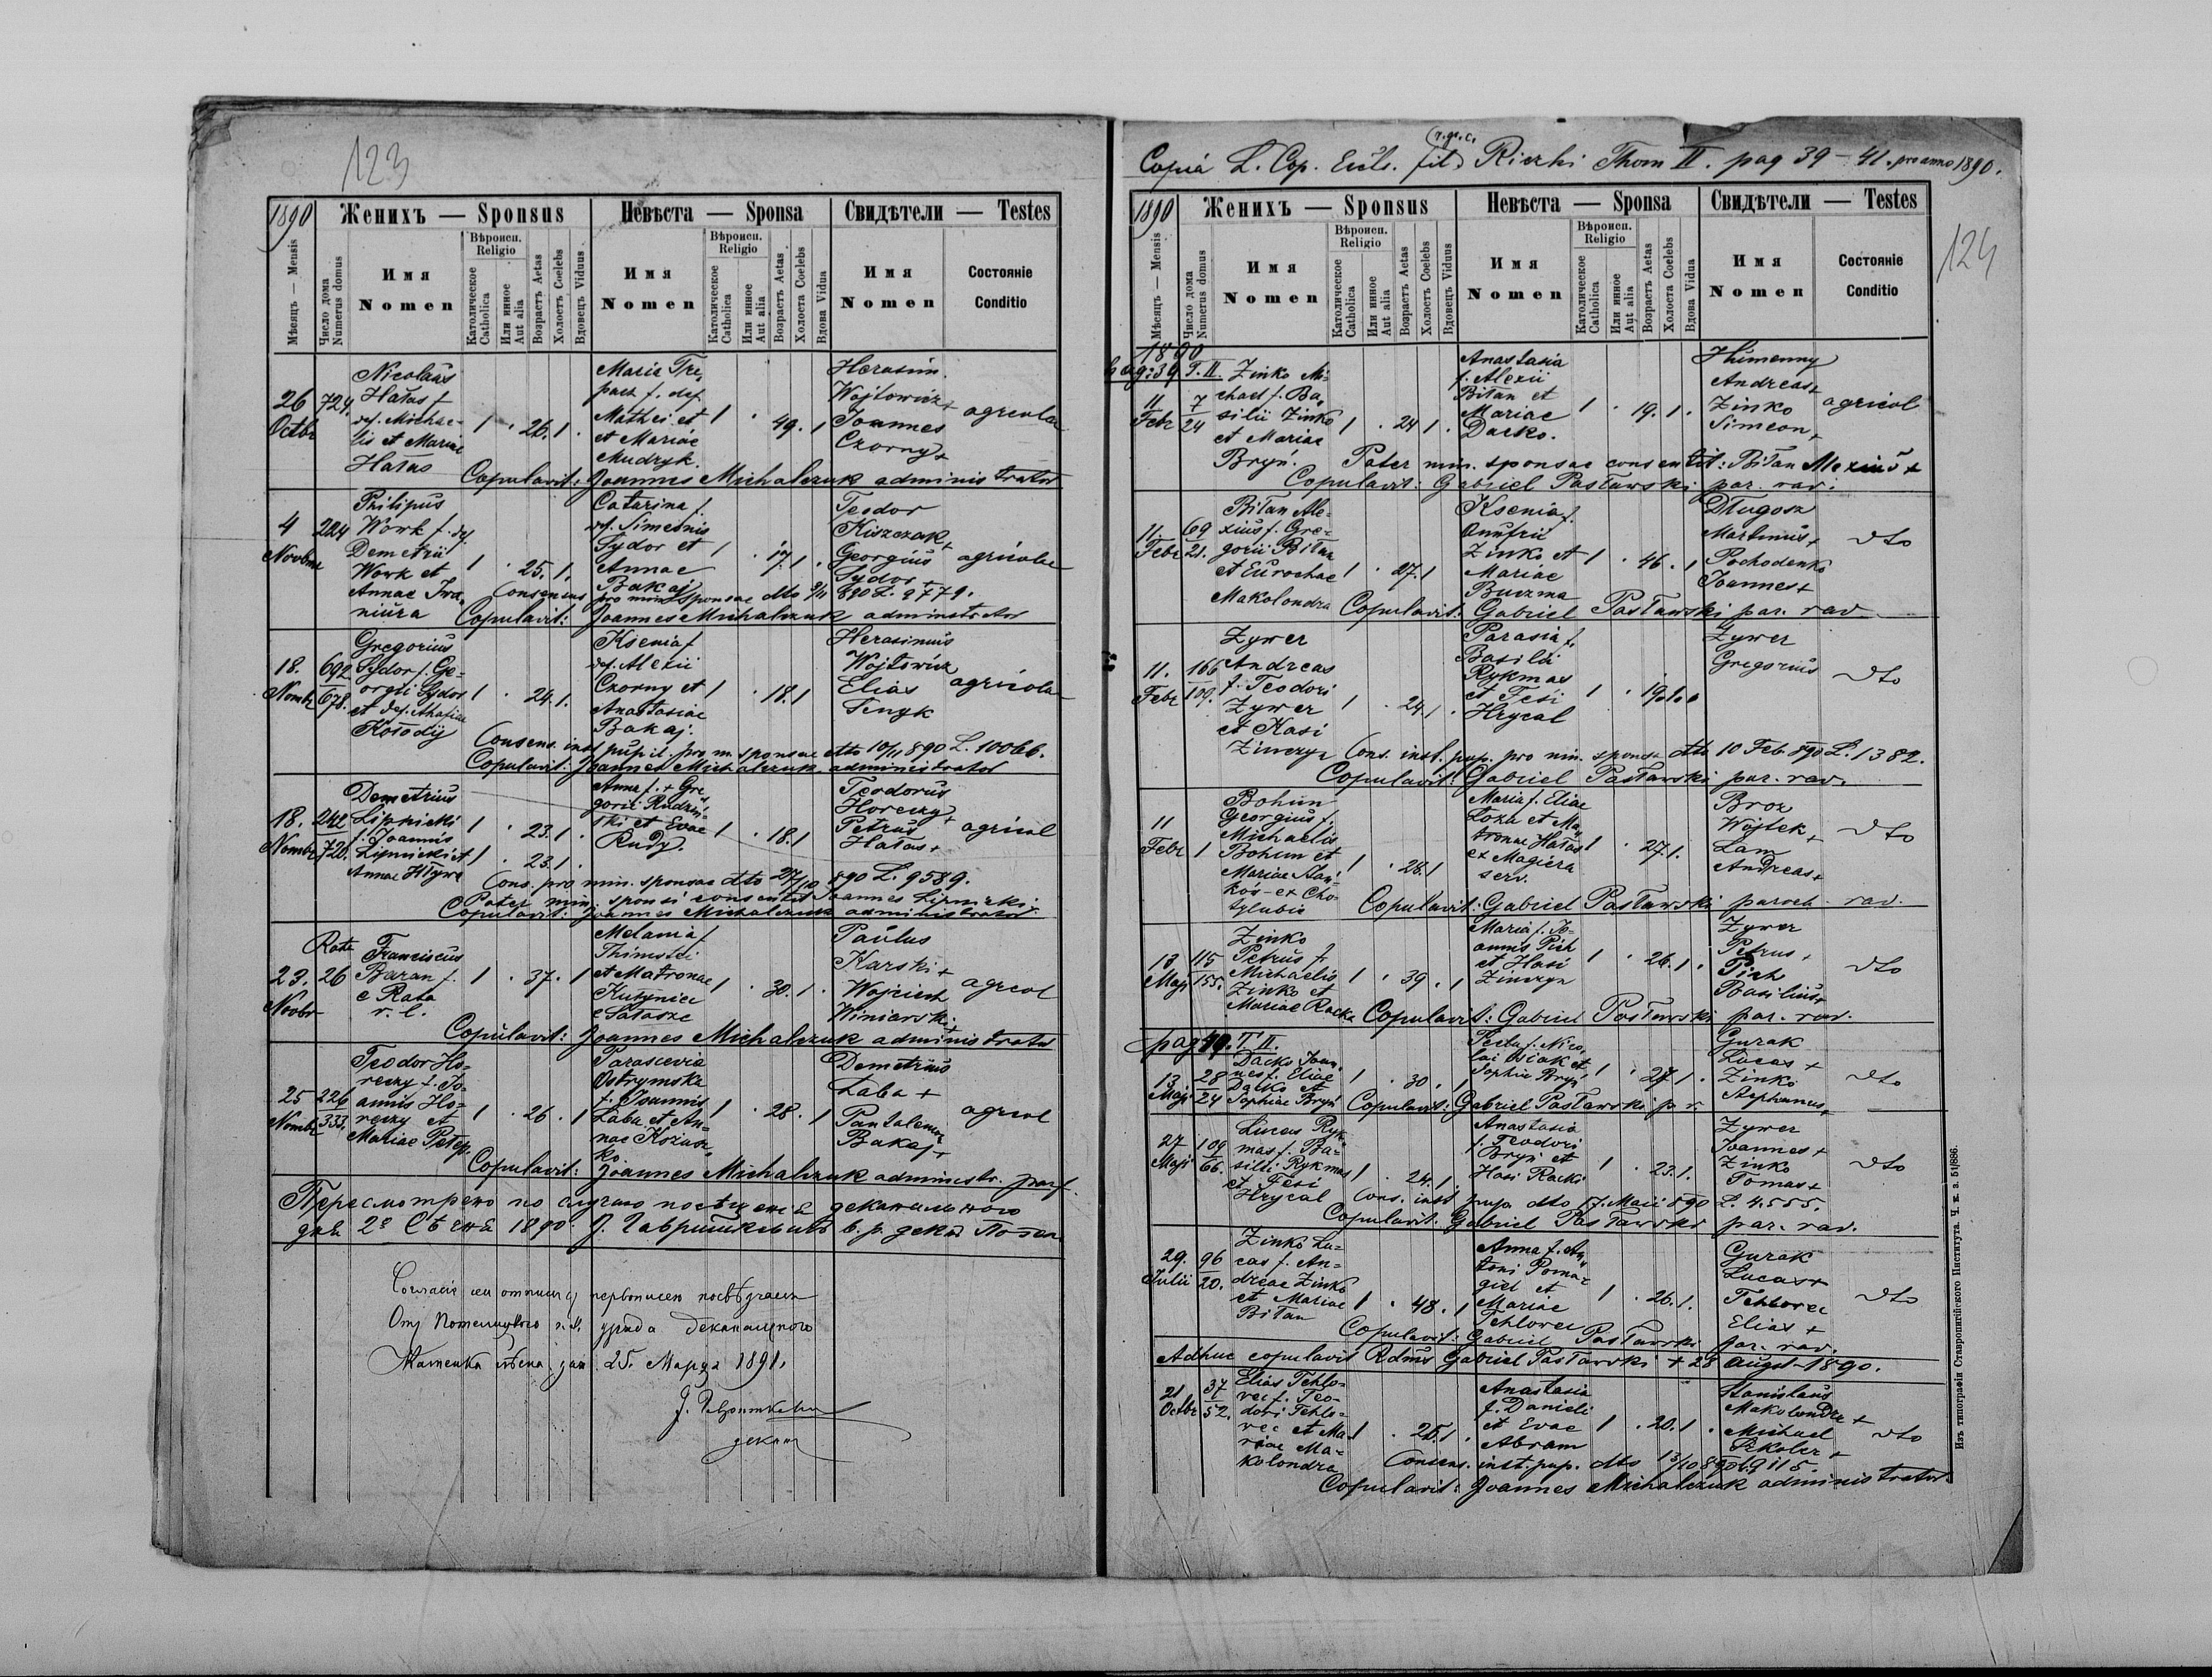 123
1890 Женихъ — Sponsus Невѣста — Sponsa Свидѣтели — Testes
Мѣсяцъ — Mensis
Число дома Numerus domus
Имя Nomen
Вѣроисп. Religio
Католическое Catholica
Или инное Aut alia
Возрастъ Aetas
Холостъ Coelebs
Вдовецъ Viduus
Имя Nomen
Вѣроисп. Religio
Католическое Catholica
Или инное Aut alia
Возрастъ Aetas
Холоста Coelebs
Вдова Vidua
Имя Nomen
Состояніе Conditio
26 Octbr
724.
Nicolaus
Hałas f.
def. Michae-
lis et Mariae
Hałas
1 . 26. 1 .
Maria Tre
pacz f. def
Mathei et
et Mariae
Mudryk.
1 . 49. 1
Herasim.
Wojtowicz +
Joannes
Czorny +
agricolae
Copulavit: Joannes Michalczuk administrator
4 Novbr
224
Philipus
Work f. def.
Demetrii
Work et
Annae Iwa
niura
1 . 25. 1.
Catarina f.
def. Simeonis
Sydor et
Annae
Bakaj
1 . 17. 1 .
Teodor
Kiszczak +
Georgius
Sydor +
agricolae
Consensus pro min. sponsae dto 3/11 890 L. 9779.
Copulavit: Joannes Michalczuk administrator
18. Nombr
692
678.
Gregorius
Sydor f. Ge-
orgii Sydor
et def. Athafiae
Kołodij
1 . 24. 1.
Ksenia f.
def. Alexii
Czorny et
Anastasiae
Bakaj.
1 . 18. 1
Herasimus
Wojtowicz
Elias
Senyk
agricolae
Consens. inst pupil. pro m. sponsae dto 10/11 890 L. 10066.
Copulavit: Joannes Michalczuk administrator
18. Nombr
242
720.
Demetrius
Lipnicki
f. Joannis
Lipnicki et
Annae Hływa
1 . 23. 1 .
1 . 23. 1 .
Anna f. + Gre
gorii Rudziń-
ski et Evae
Rudy.
1 . 18. 1
Teodorus
Horeczy +
Petrus
Hałas +
agricol
Cons. pro min. sponsae dto 27/10 890 L. 9589.
Pater min. sponsi consentit Joannes Lipnicki +
Copulavit: Joannes Michalczuk administrator
23. Novbr
Rata
26
Franciscus
Baran f.
e Rata
r. l.
1 . 37. 1
Melania f
Thimotei
et Matronae
Kutynica
e Sałasze
1 . 30. 1 .
Paulus
Karski +
Wojciech
Winiarski +
agricol
Copulavit: Joannes Michalczuk administrator
25 Nombr
226
333.
Teodor Ho-
reczy f. Jo-
annis Ho-
reczy et
Mariae Petep.
1 . 26 . 1
Parascevia
Ostrymska
f. Joannis
Łaba et An-
nae Kożusz-
ko.
1 . 28. 1
Demetrius
Łaba +
Pantalemon
Bakaj +
agricol
Copulavit: Joannes Michalczuk administr. par.
Пересмотрено по случаю посѣщенія деканального
дня 2° Сѣчня 1890.
Согласіе сего отписа съ первописею посвѣдчаетъ
Отъ Потелицкого уряда деканального
Каменка лѣсна дня 25. Марта 1891.
деканъ
Copia L. Cop. Eccles. fil. r. gr. c. Riczki Thom II. pag 39 - 41. pro anno 1890.
124
1890 Женихъ — Sponsus Невѣста — Sponsa Свидѣтели — Testes
Мѣсяцъ — Mensis
Число дома Numerus domus
Имя Nomen
Вѣроисп. Religio
Католическое Catholica
Или инное Aut alia
Возрастъ Aetas
Холостъ Coelebs
Вдовецъ Viduus
Имя Nomen
Вѣроисп. Religio
Католическое Catholica
Или инное Aut alia
Возрастъ Aetas
Холоста Coelebs
Вдова Vidua
Имя Nomen
Состояніе Conditio
1890
pag: 39 T. II.
11 Febr
7
24
Zinko Mi-
chael f. Ba-
silii Zinko
et Mariae
Bryń.
1 . 24 1 .
Anastasia
f. Alexii
Biłan et
Mariae
Dacko.
1 . 19. 1 .
Humenny
Andreas +
Zinko
Simeon +
agricol
Pater min. sponsae consentit: Biłan Alexius +
Copulavit: Gabriel Pasławski par. rav.
11. Febr
69
21.
Biłan Ale-
xius f. Gre-
gorii Biłan
et Eurochae
Makolondra
1 . 27. 1
Ksenia f.
Onufrii
Zinko et
Mariae
Buczma
1 . 46 . 1
Długosz
Martinus +
Pochodenko
Joannes +
dto
Copulavit: Gabriel Pasławski par. rav.
11. Febr
166
109.
Zywer
Andreas
f. Teodori
Zywer
et Kasi
Zinczyn
1 . 24. 1 .
Parasia f.
Basilii
Rykmas
et Fesi
Hrycal
1 . 19. 1.
Zywer
Gregorius
dto
Cons. inst. pup. pro min. sponsa dto 10 Feb 890 L. 1382.
Copulavit: Gabriel Pasławski par. rav.
11 Febr
1
Bohun
Georgius f.
Michaelis
Bohun et
Mariae Hań-
kós - ex Cho-
tylubie
1 . 26. 1
Maria f. Eliae
Łoza et Ma-
tronae Hałas
ex Magiera
serv.
1 . 27. 1.
Broz
Wojtek +
Łam
Andreas +
dto
Copulavit: Gabriel Pasławski paroch. rav.
13 Maji
115
155.
Zinko
Petrus f.
Michaelis
Zinko et
Mariae Racka
1 . 39 . 1
Maria f. Jo-
annis Pich
et Hasi
Zinczyn
1 . 26. 1 .
Zywer
Petrus +
Pich
Basilius +
dto
Copulavit: Gabriel Pasławski par. rav.
pag 40. T II.
13 Maji
28
24
Dacko Joan-
nes f. Eliae
Dacko et
Sophiae Bryń
1 . 30 . 1
Tecla f. Nico-
lai Osiak et
Sophia Bryń
1 . 27 1 .
Gurak
Lucas +
Zinko
Stephanus +
dto
Copulavit: Gabriel Pasławski p. r.
27 Maji
109
66.
Lucas Ryk-
mas f. Ba-
silii Rykmas
et Fesi
Hrycal
1 . 24. 1 .
Anastasia
f. Teodori
Bryń et
Hasi Racka
1 . 23. 1 .
Zywer
Joannes +
Zinko
Tomas +
dto
Cons. inst pupa dto 7. Maii 890 L. 4.555.
Copulavit. Gabriel Pasławski par. rav.
29. Julii
96
20.
Zinko Lu-
cas f. An-
dreae Zinko
et Mariae
Biłan
1 . 48. 1
Anna f. An-
toni Poma-
gid et
Mariae
Tchlorec
1 . 26. 1 .
Gurak
Lucas +
Tchlorec
Elias +
dto
Copulavit: Gabriel Pasławski par. rav.
Adhuc copulavit Rdmus Gabriel Pasławski + 28 August 1890.
21 Octbr
37
52.
Elias Tchlo-
rec f. Teo-
dori Tchlo-
rec et Ma-
riae Ma-
kolondra
1 . 25. 1 .
Anastasia
f. Danieli
et Evae
Abram
1 . 20. 1 .
Stanislaus
Makolondra +
Michael
Pkolec +
dto
Consens. inst. pup. dto 13/10 890 L. 9115.
Copulavit: Joannes Michalczuk administrator
Изъ типографіи Ставропигійского Института. Ч. к. з. 51/886.